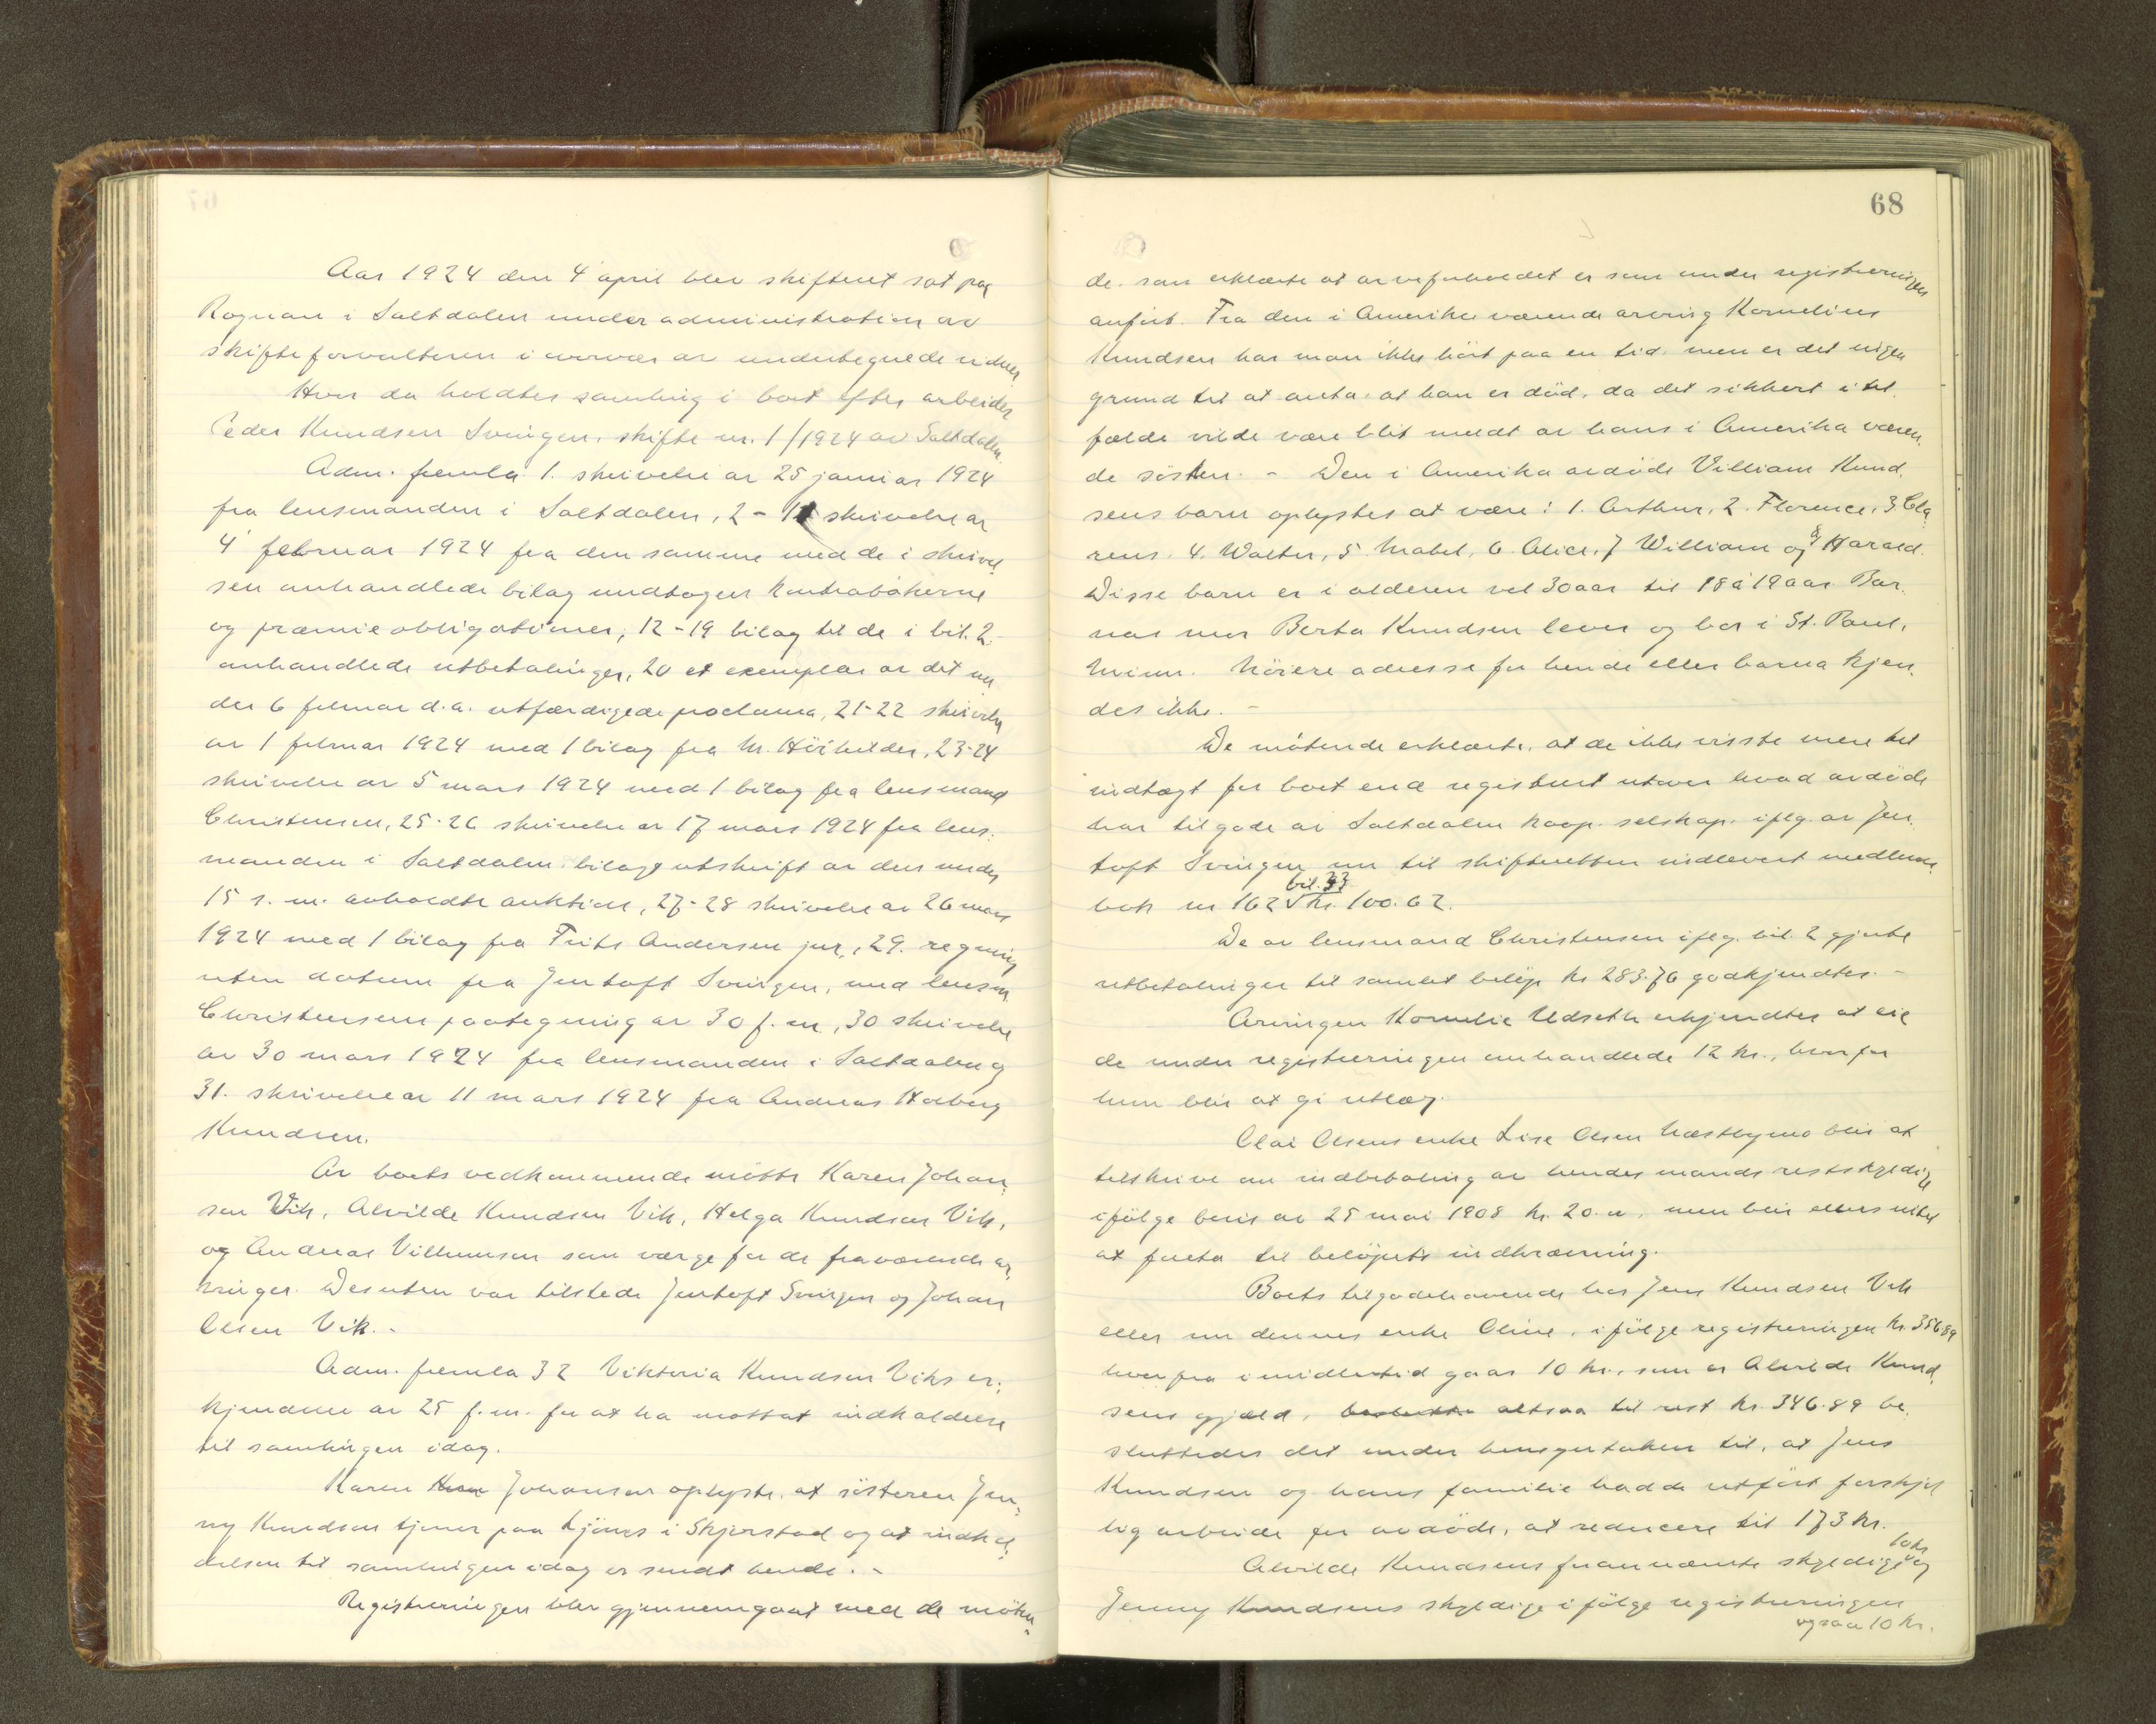 Aar 1924 den 4 april blev skifteret sat paa
Rognan i Saltdalen under administration av
skifteforvalteren i overvær av undertegnede vidner
Hvor da holdtes samling i boet efter arbeider
Peder Knudsen Svingen, skifte nr. 1/1924 av Saltdalen.
Adm. fremla 1. skrivelse av 25 januar 1924
fra lensmanden i Saltdalen, 2-11 skrivelse av
4 februar 1924 fra den samme med de i skrivel
sen omhandlede bilag undtagen kontrabøkerne
og præmieobligationer, 12-19 bilag til de i bil. 2.
omhandlede utbetalinger, 20 et exemplar av det un
der 6 februar d.a. utfærdigede proclama, 21-22 skrivelse
av 1 februar 1924 med 1 bilag fra M. Høibilder, 23-24
skrivelse av 5 mars 1924 med 1 bilag fra lensmand
Christensen, 25-26 skrivelse av 17 mars 1924 fra lens-
manden i Saltdalen bilagt utskrift av den under
15 s. m. avholdte auktion, 27-28 skrivelse av 26 mars
1924 med 1 bilag fra Frits Andersen jur., 29. regning
uten datum fra Jentoft Svingen, med lensm.
Christensens paategning av 30 f. m., 30 skrivelse
av 30 mars 1924 fra lensmanden i Saltdalen og
31. skrivelse av 11 mars 1924 fra Andreas Holberg
Knudsen.
Av boets vedkommende møtte Karen Johan-
sen Vik, Alvilde Knudsen Vik, Helga Knudsen Vik,
og Andreas Villumsen som værge for de fraværende ar-
vinger. Desuten var tilstede Jentoft Svingen og Johan
Olsen Vik.-
Adm. fremla 32 Viktoria Knudsen Viks er-
kjendelse av 25 f. m. for at ha mottat indkaldelse
til samlingen idag.
Karen Johansen oplyste, at søsteren Jen-
ny Knudsen tjener paa Ljønes i Skjerstad og at indkal-
delsen til samlingen idag er sendt hende.-
Registreringen blev gjennemgaat med de møten-
68
de. som erklærte at arveforholdet er som under registreringen
anført. Fra den i Amerika værende arving Kornelius
Knudsen har man ikke hørt paa en tid. men er det ingen
grund til at anta, at han er død, da det sikkert i til
fælde vilde være blit meldt av hans i Amerika væren
de søsken. - Den i Amerika avdøde Villiam Knud
sens barn oplystes at være: 1. Arthur, 2. Florence, 3 Cla
rens. 4. Walter, 5 Mabel, 6 Alice, 7 William og 8 Harald.
Disse barn er i alderen vel 30 aar til 18 à 19 aar. Bar
nas mor Berta Knudsen lever og bor i St. Paul,
Minn. Nöiere adresse for hende eller barna kjen
des ikke. -
De møtende erklærte, at de ikke visste mere til
indtægt for boet end registrert utover hvad avdøde
har tilgode av Saltdalen koop. selskap iflg. av Jen
toft Svingen nu til skifteretten indlevert medlems
bil. 33
bok nr 162 kr. 100.62.
De av lensmand Christensen iflg. bil. 2 gjorte
utbetalinger til samlet beløp kr 283.76 godkjendtes. -
Arvingen Kornelie Udseth erkjendtes at eie
de under registreringen omhandlede 12 kr., hvorfor
hun blir at gi utlæg.
Olai Olsens enke Lise Olsen Næstbymo blir at
tilskrive om indbetaling av hendes mands restskyldige
ifølge bevis av 25 mai 1908 kr. 20.-, men blir ellers intet
at foreta til beløpets inddrivning.
Boets tilgodehavende hos Jens Knudsen Vik
eller nu dennes enke Oline, ifølge registreringen kr. 356.89
hvorfra imidlertid gaar 10 kr., som er Alvilde Knud
sens gjæld, altsaa til rest kr. 346.89 be
sluttedes det under hensyntaken til, at Jens
Knudsen og hans familie hadde utført forskjel
lig arbeide for avdøde, at reducere til 173 kr.
Alvilde Knudsens forannævnte skyldige 10 kr og
Jenny Knudsens skyldige ifølge registreringen
ogsaa 10 kr.